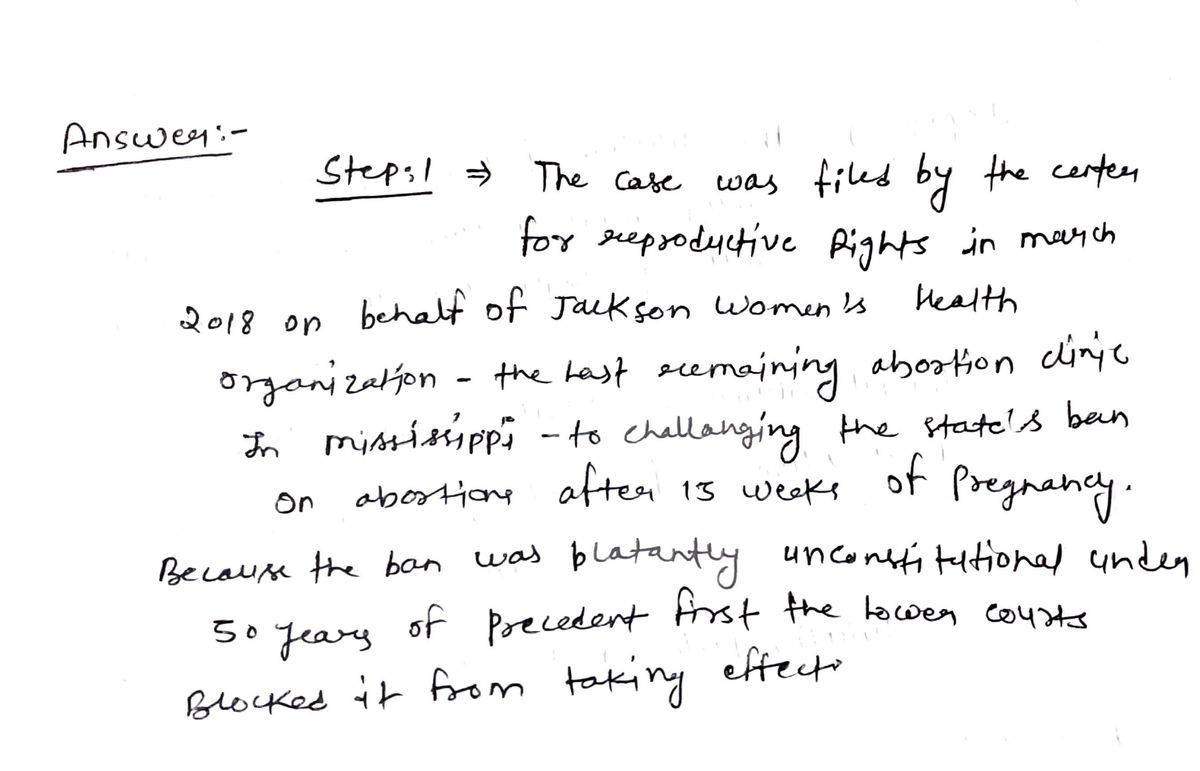 Answer:-
Step:1 ⇒ The case was filed by the center
for reproductive Rights in march
2018 on behalf of Jackson Women's Health
organization - the Last remaining abortion clinic
In mississippi - to challanging the state's ban
on abortions after 15 weeks of Pregnancy.
Because the ban was blatantly unconstitutional under
50 years of precedent first the lower courts
Blocked it from taking effect.